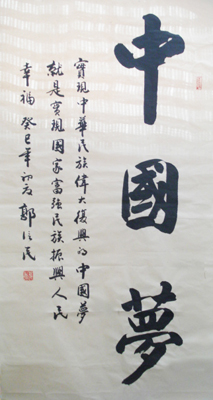 中國夢
實現中華民族偉大復興的中國夢
就是實現國家富強民族振興人民
幸福 癸巳年初夏 郭